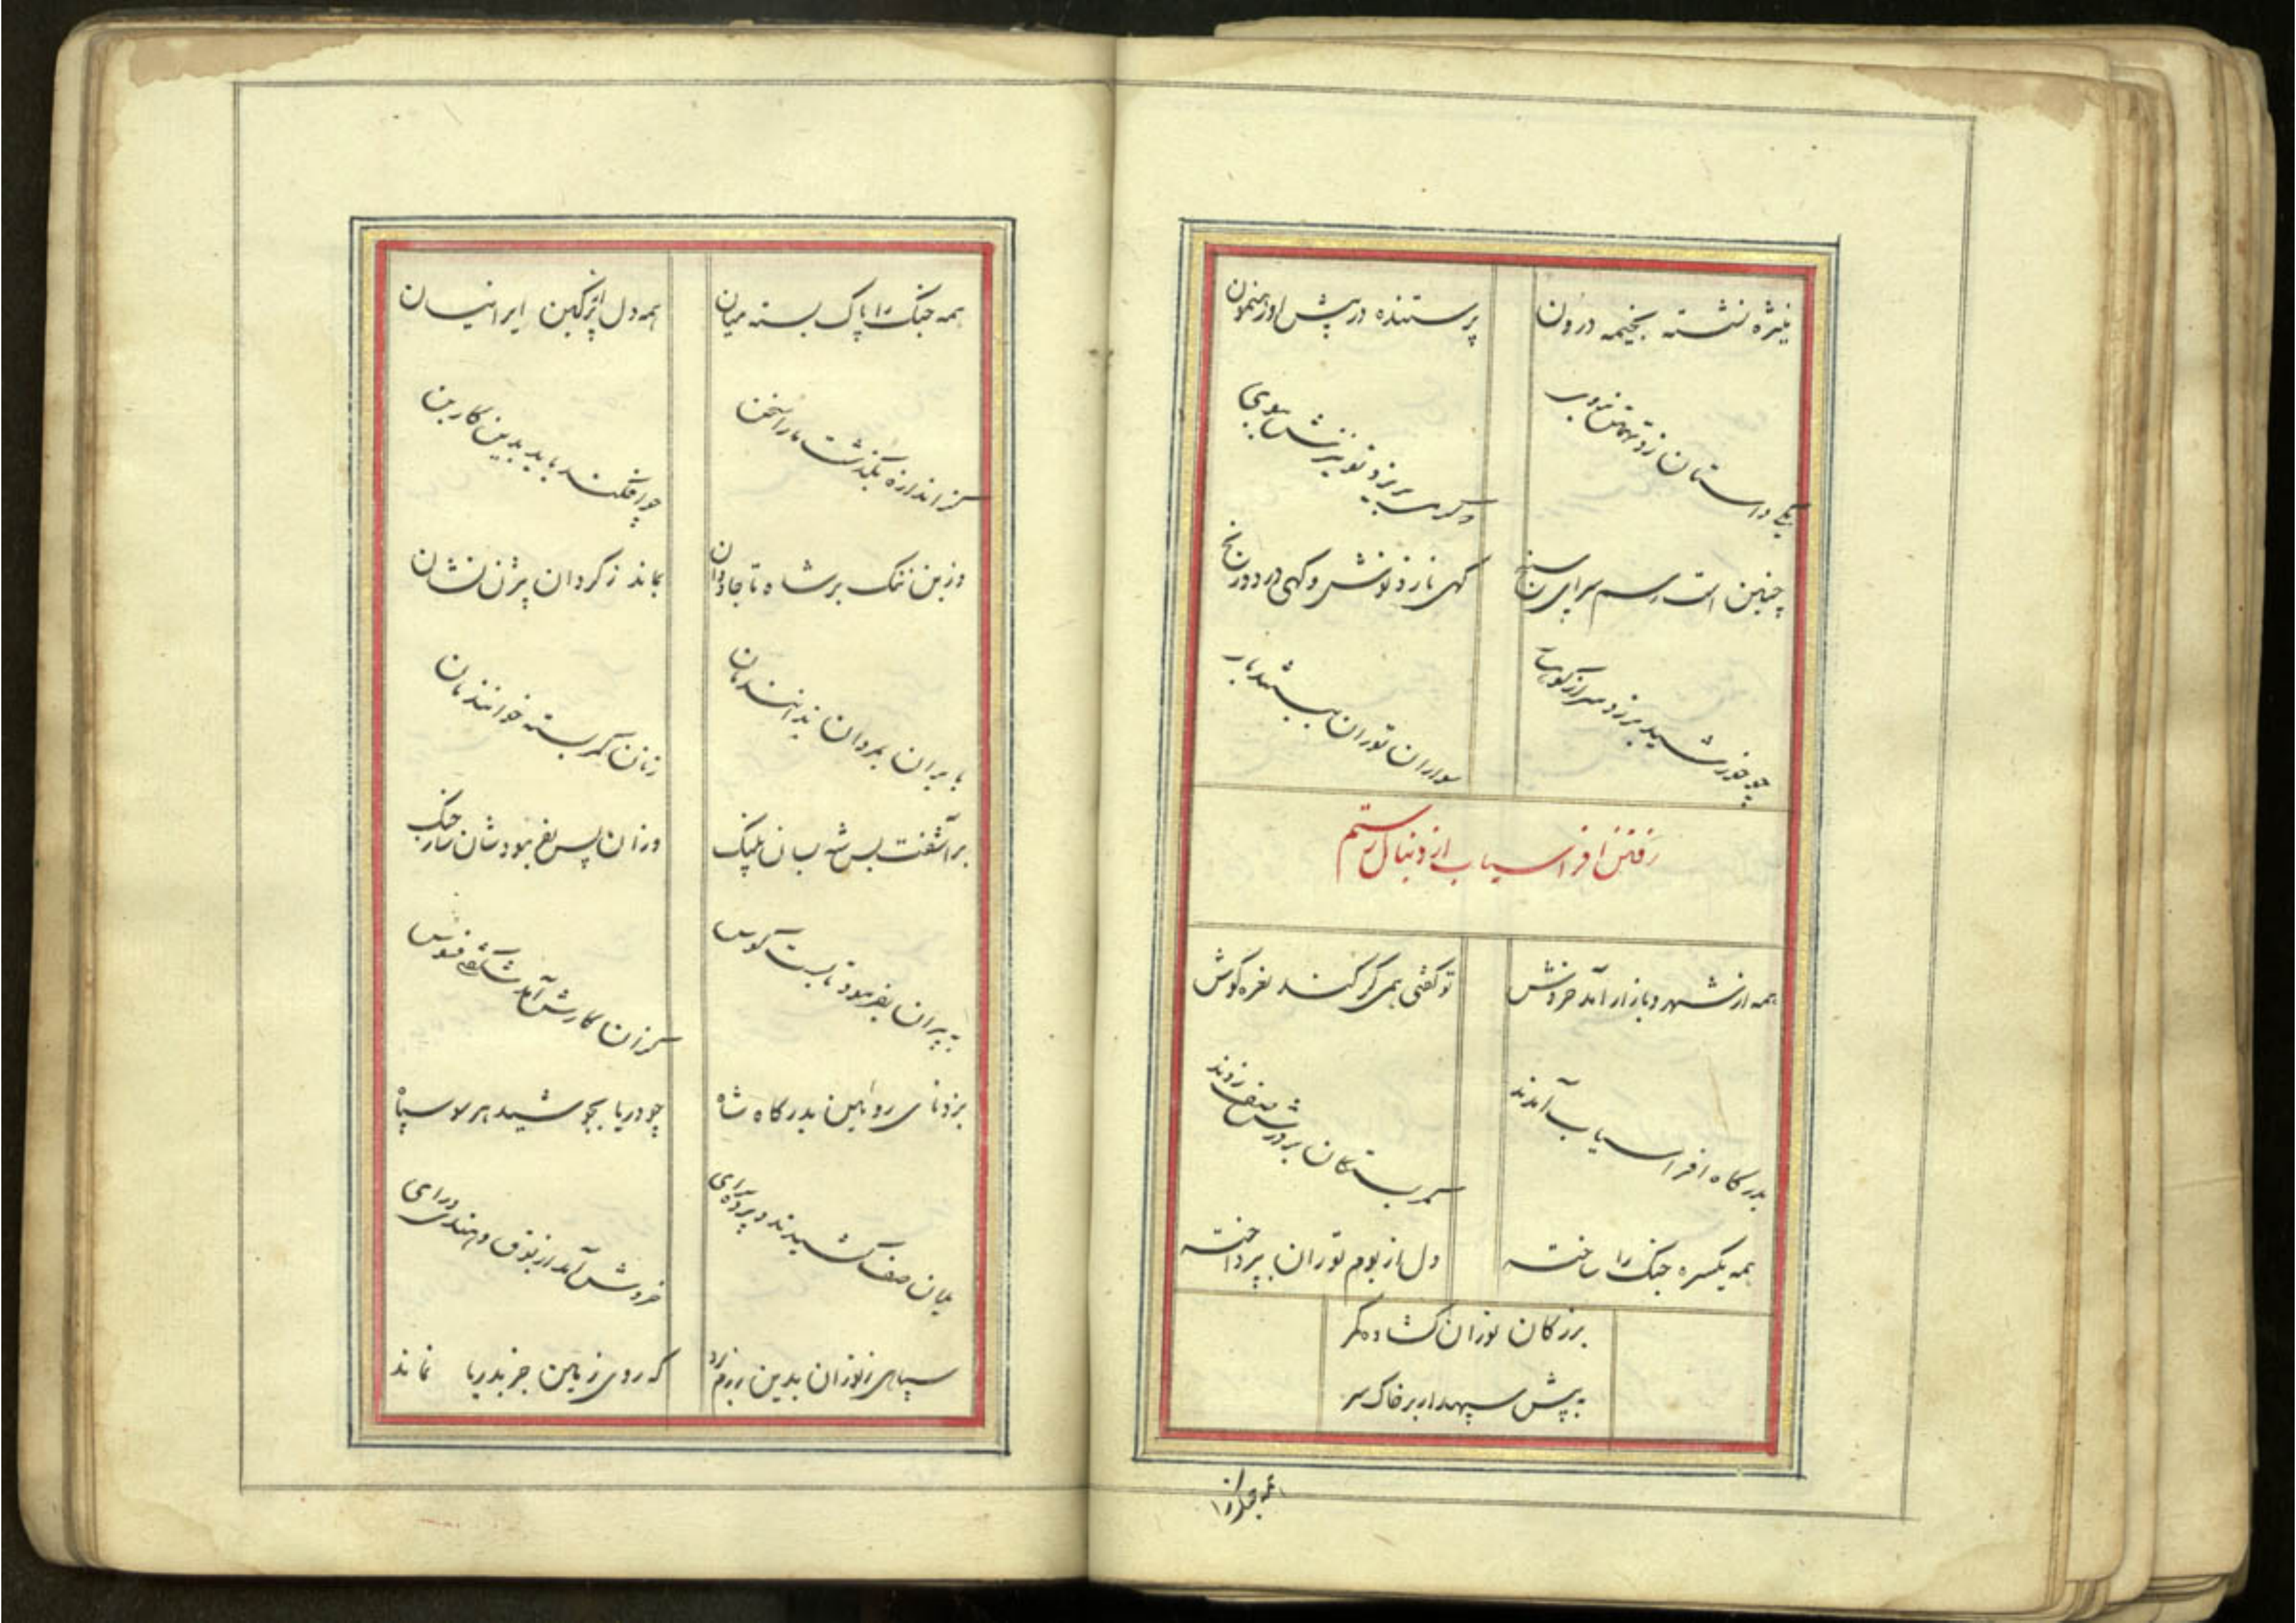 منیژه نشسته بخیمه درون پرستنده در پیش او رهنمون
یکی داستان زد تهمتن بروی که گر می بریزد نریزدش بوی
چنین است رسم سرای سپنج گهی ناز و نوش و گهی درد و رنج
چو خورشید برزد سر از کوهسار سواران توران ببستند بار
رفتن افراسیاب از دنبال رستم
همه از شهر و بازار آمد خروش تو گفتی همی کر کند نعره گوش
بدرگاه افراسیاب آمدند کمر بستگان بر درش صف زدند
همه یکسره جنک را ساخته دل از بوم توران بپرداخته
بزرکان توران کشاده کمر
به پیش سپهدار بر خاک سر
همه جنک را
همه جنک را پاک بسته میان همه دل پر از کین ایرانیان
کز اندازه بگذشت ما را سخن چه افکند باید بدین کار بن
وزین ننک بر شاه تا جاودان بماند ز کردار بیژن نشان
بایران بمردان ندانندمان زنان کمر بسته خوانندمان
برآشفت پس شه بسان پلنک وزان پس بفرمودشان ساز جنک
به پیران بفرمود تا بست کوس کزان کارش آمد شکفتی فسوس
بزد نای رویین بدرکاه شاه چو دریا بجوشید هر سو سپاه
یلان صف کشیدند بر در سرای خروش آمد از بوق و هندی درای
سپاهی ز توران بدین رزم راند که روی زمین جز بدریا نماند